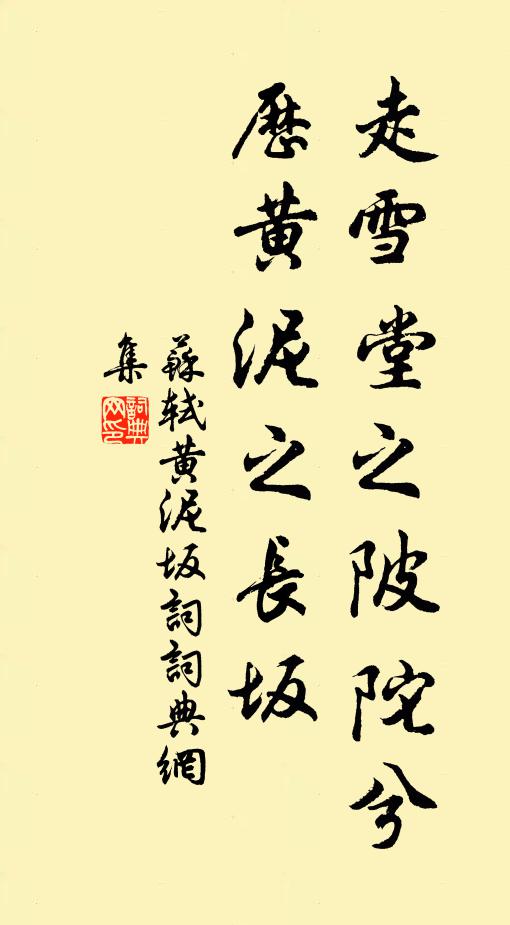 走雪堂之陂陀兮
歷黃泥之長坂
蘇軾黃泥坂詞詞典網
集
詞典
网印